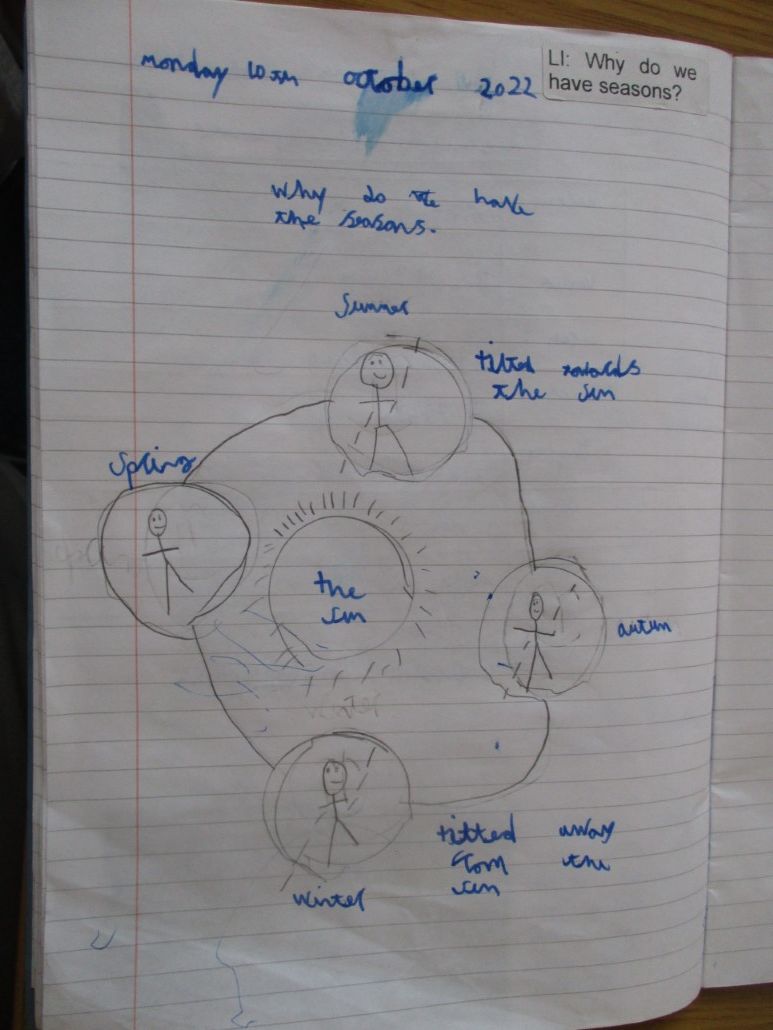 monday 10th october 2022
LI: Why do we
have seasons?
Why do we have
the seasons.
Summer
tilted towards
the sun
Spring
the
sun
autum
winter
tilted away
from the
sun
Winter